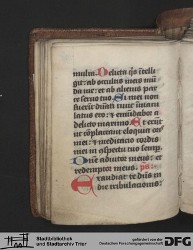 multa. Delicta q̄s ītelli
git: ab ocultis meis mū
da me: et ab alienis par
ce seruo tuo. Si mei non
fuerint dn̄ati tunc īmacu
latus ero: et emūdabor a
delicto maximo. Et erūt
ut ↄplaceant eloquia oris
mei: et meditacio cordis
mei in ↄspectu tuo semꝑ.
Dn̄e adiutor meus: et
redemptor meus. ps.
Exaudiat te dn̄s in
die tribulationis:
Stadtbibliothek
und Stadtarchiv Trier
gefördert durch die
Deutsche Forschungsgemeinschaft
DFG